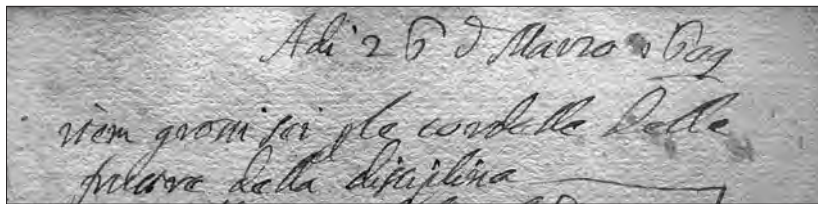 Adi 26 d Marzo 1609
item grossi sei p le cordelle delle
della disciplina